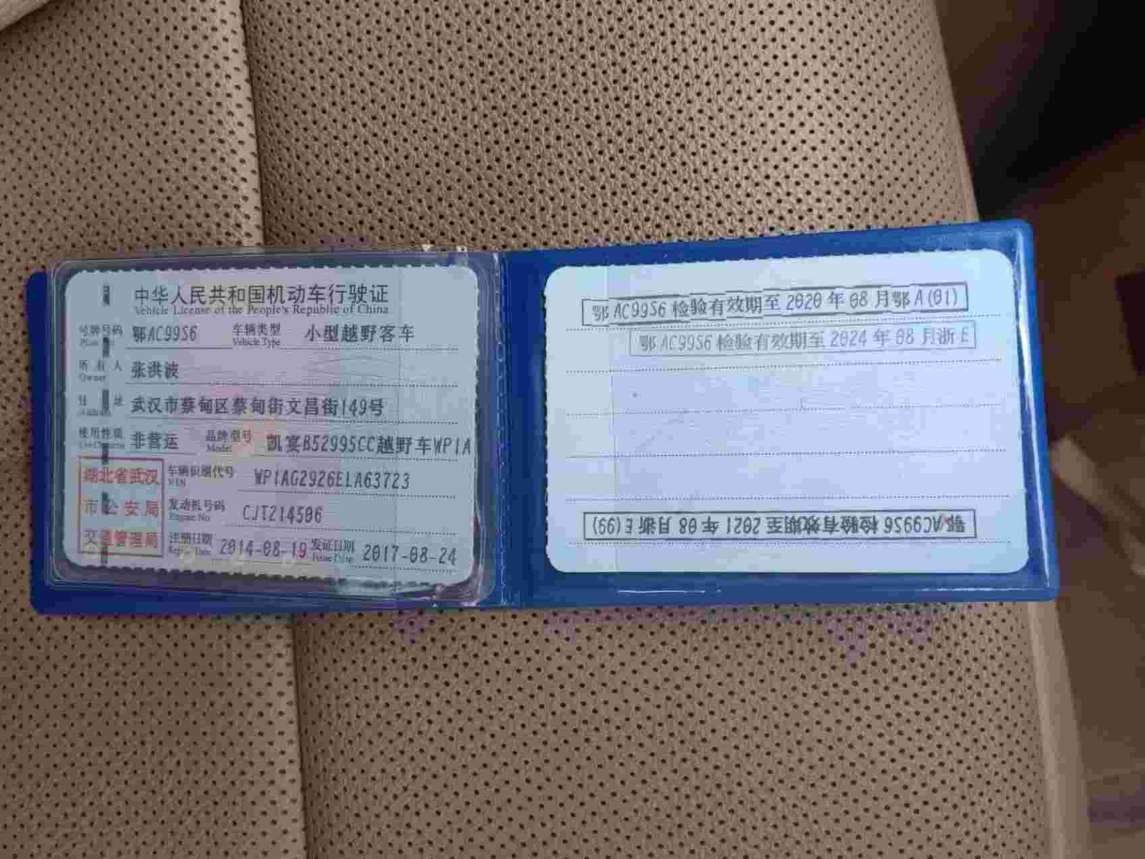 中华人民共和国机动车行驶证
Vehicle License of the People's Republic of China
号牌号码 鄂AC99S6 车辆类型 小型越野客车
Vehicle Type
所有人 张洪波
Owner
住址 武汉市蔡甸区蔡甸街文昌街149号
使用性质 非营运 品牌型号 凯宴B52995CC越野车WP1A
Model
湖北省武汉
市公安局
交通管理局
车辆识别代号 WP1AG2926ELA63723
VIN
发动机号码 CJT214506
Engine No.
注册日期 2014-08-19 发证日期 2017-08-24
Issue Date
鄂AC99S6检验有效期至2020年08月鄂A(01)
鄂AC99S6检验有效期至2024年08月浙E
鄂AC99S6检验有效期至2021年08月浙E(99)